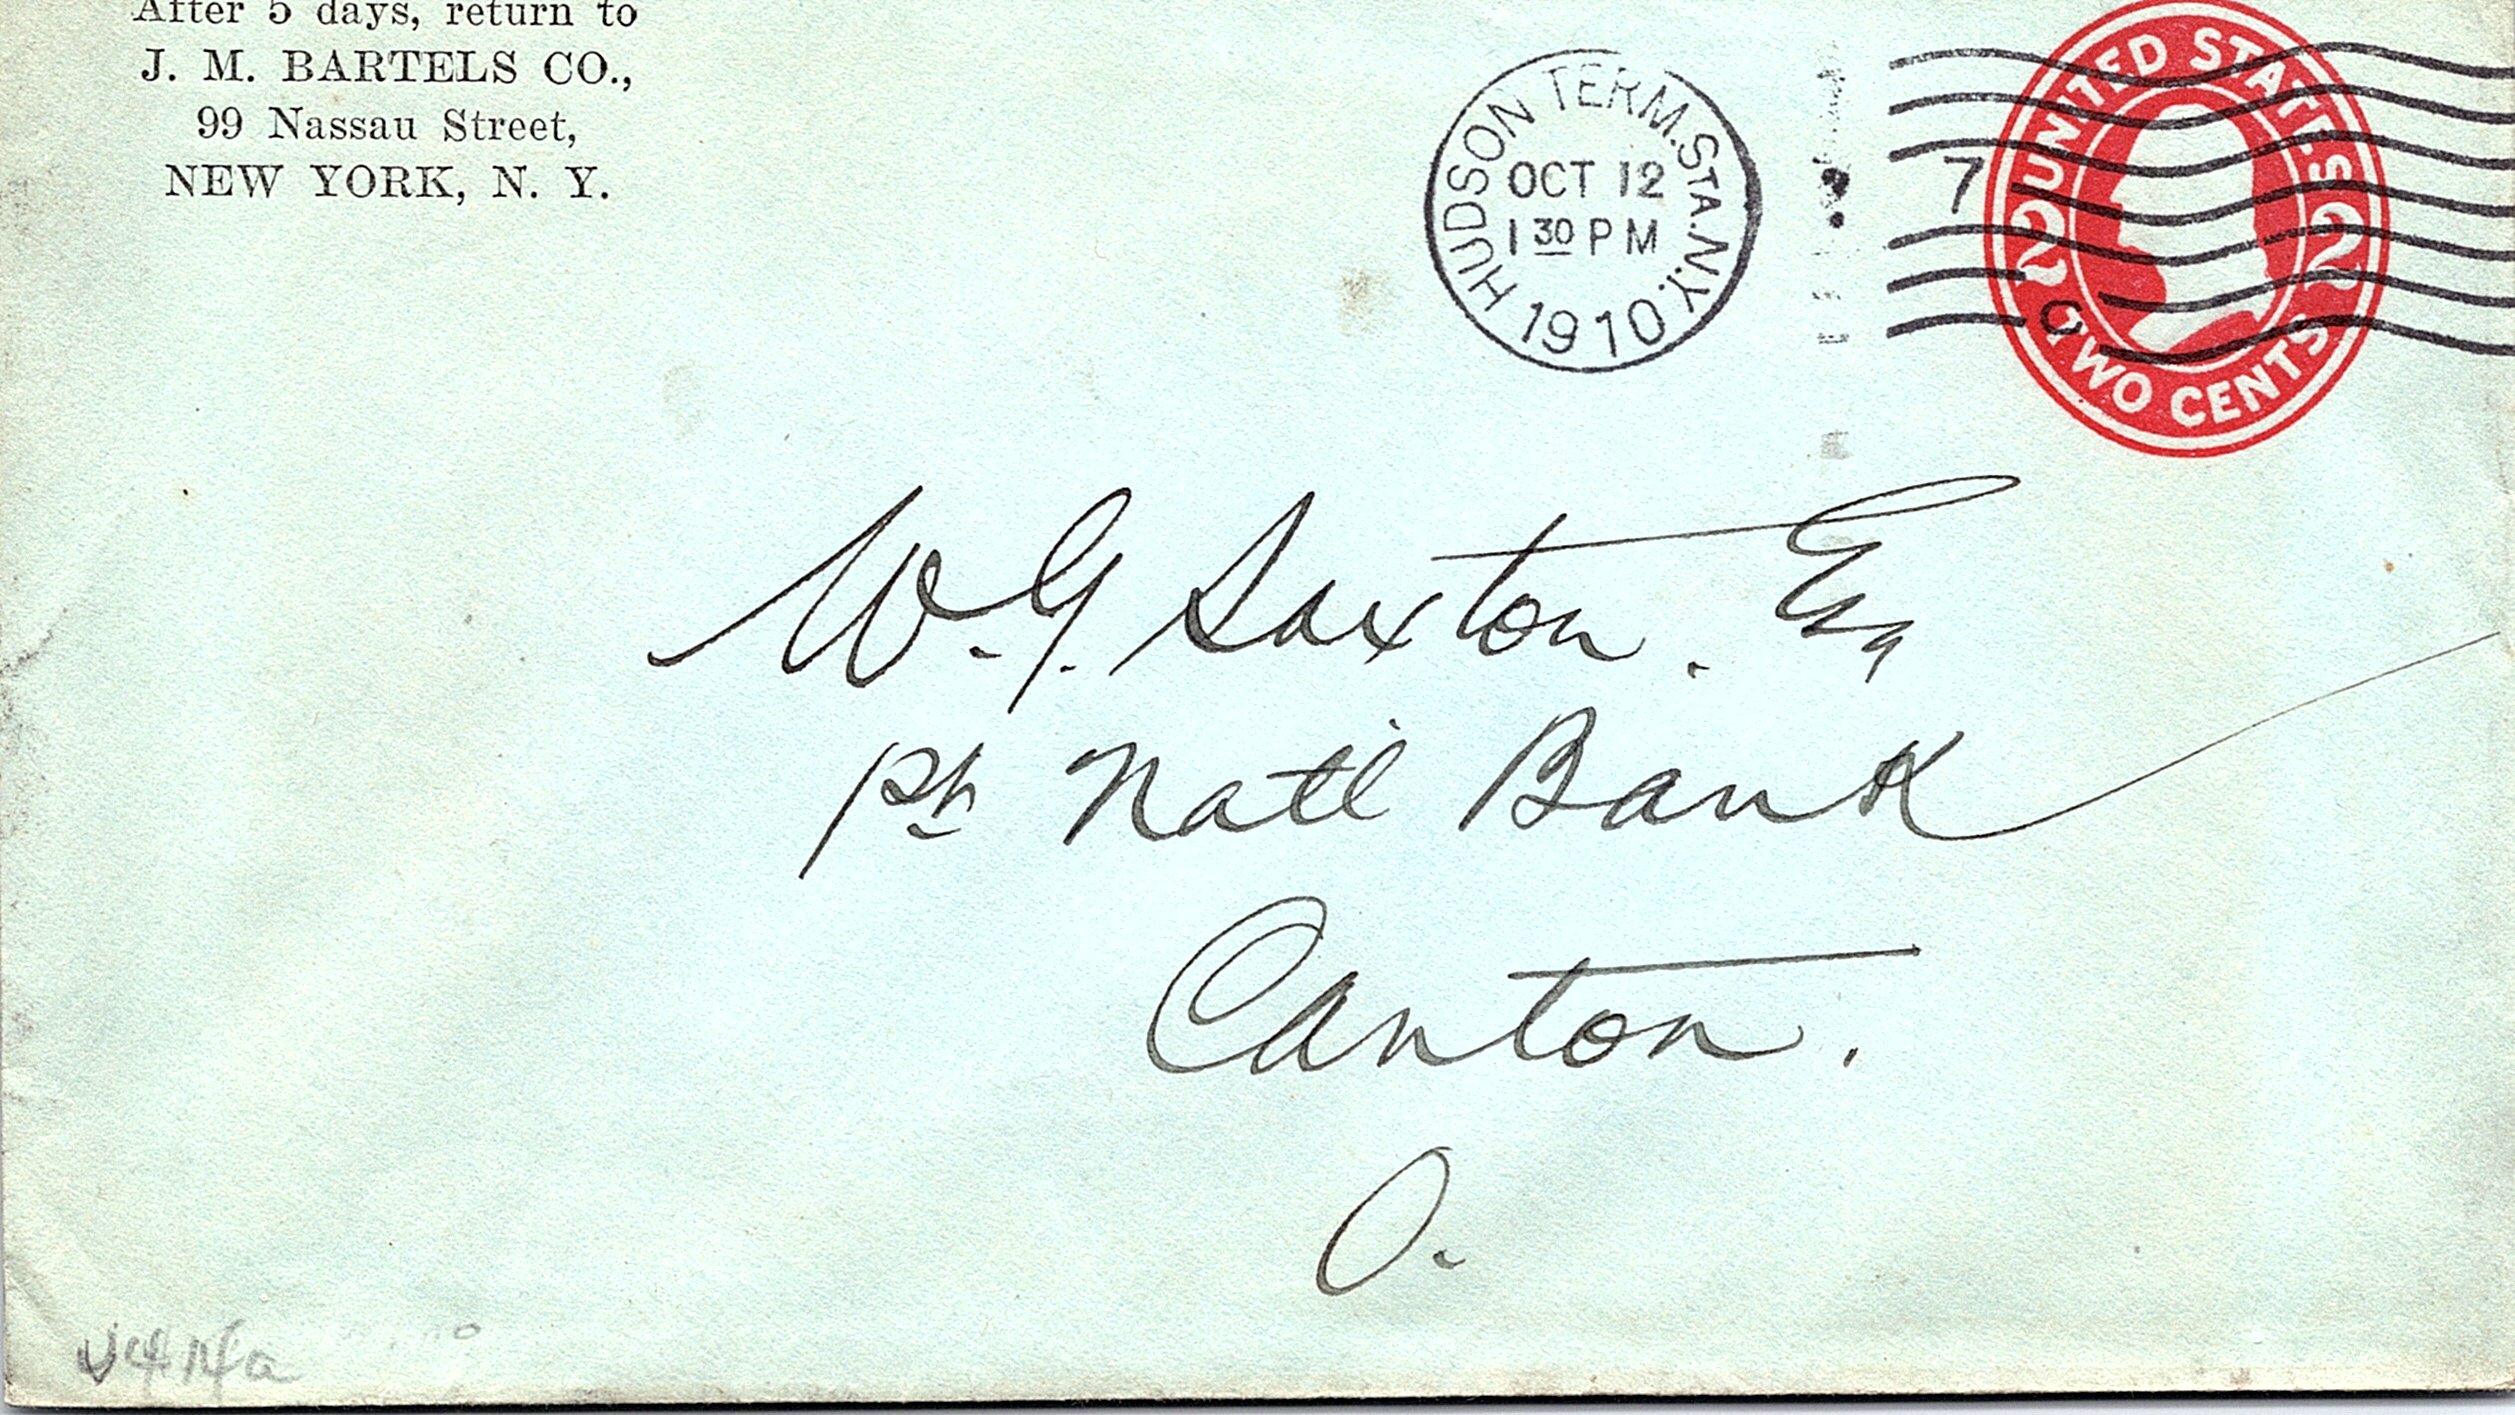 After 5 days, return to
J. M. BARTELS CO.,
99 Nassau Street,
NEW YORK, N. Y.
HUDSON TERM. STA. N.Y.
OCT 12
1 30 PM
1910
7
UNITED STATES
2 2
TWO CENTS
W. G. Saxton. Esq
Natl Bank
Canton.
O.